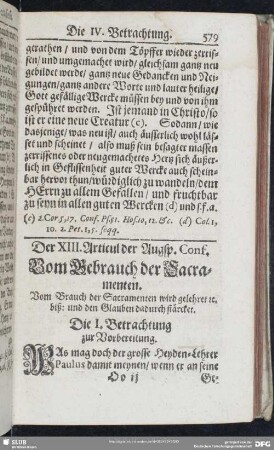 Die IV. Betrachtung. 579
gerathen / und von dem Töpffer wieder zerris-
sen / und umgemachet wird / gleichsam gantz neu
gebildet werde / gantz neue Gedancken und Nei-
gungen / gantz andere Worte und lauter heilige /
Gott gefällige Wercke müssen bey und von ihm
gespühret werden. Ist jemand in Christo / so
ist er eine neue Creatur (c). Sodann / wie
dasjenige / was neu ist / auch äusserlich wohl läs-
set und scheinet / also muß sein besagter massen
zerrissenes oder neugemachetes Hertz sich äusser-
lich in Geflissenheit guter Wercke auch schein-
bar hervor thun / würdiglich zu wandeln / dem
HErrn zu allem Gefallen / und fruchtbar
zu seyn in allen guten Wercken (d) und s.f.a.
(c) 2.Cor.5,17. Conf. Ps.51. Hos.10, 12.&c. (d) Col.1,
10. 2. Pet.1,5. seqq.
Der XIII. Articul der Augsp. Conf.
Vom Gebrauch der Sacra-
menten.
Vom Brauch der Sacramenten wird gelehret ꝛc.
biß: und den Glauben dadurch stärcket.
Die I. Betrachtung
zur Vorbereitung.
WAs mag doch der grosse Heyden-Lehrer
Paulus damit meynen / wenn er an seine
Oo ij Ge-
SLUB
DFG